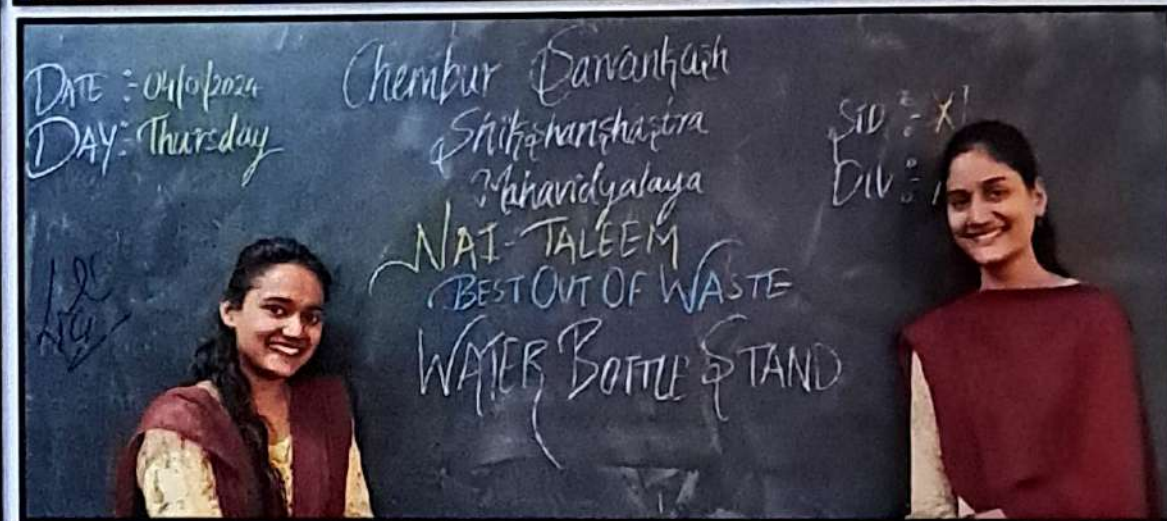 DATE :- 04/01/2024
DAY :- Thursday
Chembur Sarvankash
Shikshanshastra
Mahavidyalaya
NAI-TALEEM
BEST OUT OF WASTE
WATER BOTTLE STAND
STD :- XI
DIV :-